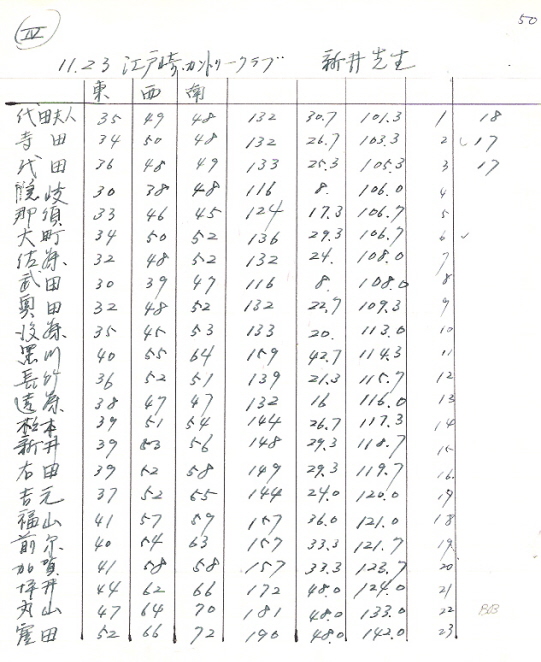 IV 50
11.23 江戸崎カントリークラブ 新井先生
東 西 南
代田夫人 35 49 48 132 30.7 101.3 1 18
寺田 34 50 48 132 26.7 103.3 2 17
代田 36 48 49 133 25.3 105.3 3 17
隠岐 30 38 48 116 8. 106.0 4
那須 33 46 45 124 17.3 106.7 5
大町 34 50 52 136 29.3 106.7 6 ✓
佐藤 32 48 52 132 24. 108.0 7
武田 30 39 47 116 8. 108.0 8
奥田 32 48 52 132 22.7 109.3 9
35 45 53 133 20. 113.0 10
黒川 40 55 64 159 42.7 114.3 11
長竹 36 52 51 139 21.3 115.7 12
遠藤 38 47 47 132 16 116.0 13
松本 39 51 54 144 26.7 117.3 14
新井 39 53 56 148 29.3 118.7 15
右田 39 52 58 149 29.3 119.7 16
吉元 37 52 55 144 24.0 120.0 17
福山 41 57 59 157 36.0 121.0 18
前尓 40 54 63 157 33.3 121.7 19
加賀 41 58 58 157 33.3 123.7 20
坪井 44 62 66 172 48.0 124.0 21
丸山 47 64 70 181 48.0 133.0 22 BB
窪田 52 66 72 190 48.0 142.0 23